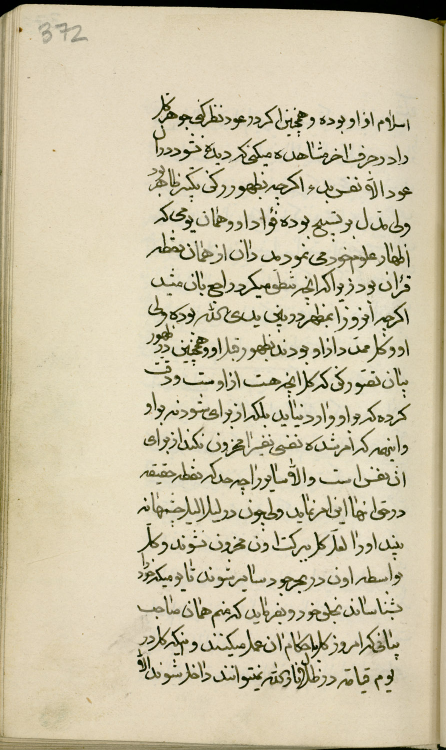 372
اسلام از او بوده و همچنین اکر در عود نظر کنی جوهر کل
را در حرف اخر مشاهده میکنی که دیده نشود در ان
عود الا نفس بدء اکرچه بظهور رکن تکبیر ظاهر بود
ولی مدل بر تسبیح بوده فؤاد او و همان یومی که
اظهار علوم خود می نمود مدد ان از همان نقطه
قرآن بود زیرا که انچه
اکرچه انروز بمظهر در بین یدی الله بوده ولی
او و کل ممد از او بودند بظهور قبل او و همچنین در ظهور
بیان تصور کن که کل انچه هست از اوست و دقت
کرده که بر او وارد نیاید بلکه از برای شود نه بر او
و اینهمه که امر شده نفسی نفسیرا محزون نکند از برای
ان نفس است والا سایرین را چه حد که نقطه حقیقه
در حق انها این امر نماید ولی چون در لیل الیل چشمها نه
بیند او را لعل کل ببرکت اون محزون نشوند و کل
بواسطه اون در بحر جود سایر شوند تا یومیکه خود را
بشناساند بخلق خود و بفرماید که منم همان صاحب
بیانی که امروز کل باحکام ان عمل میکنند و نیز که کل در
یوم قیامة در ظل الله نمیتوانند داخل شوند الا